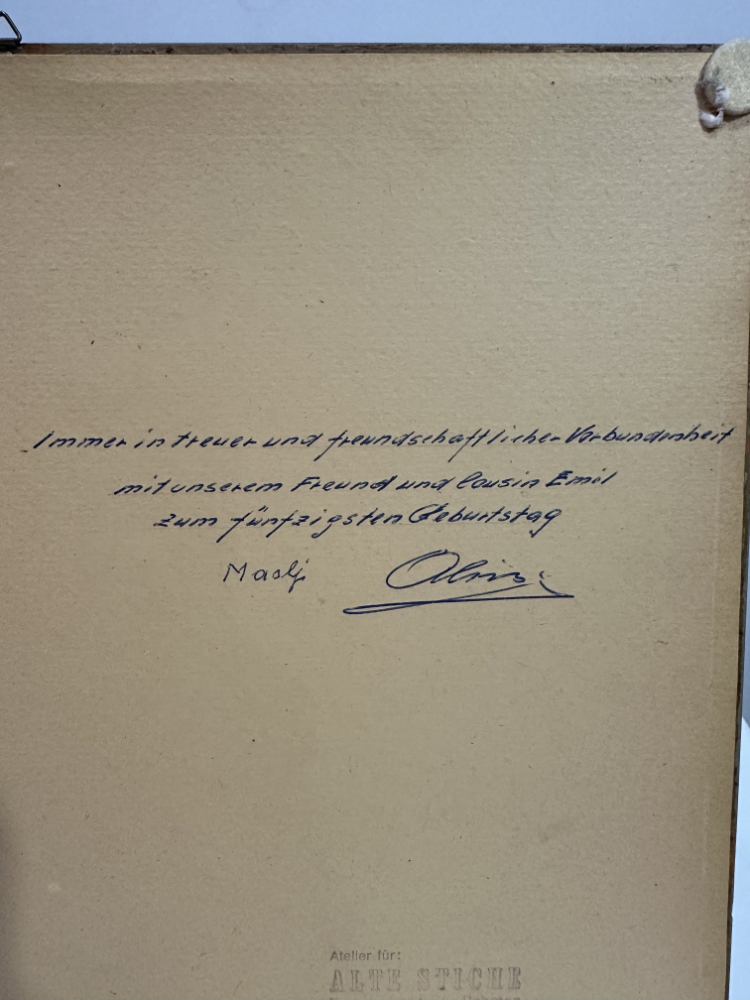 Immer in treuer und freundschaftlicher Verbundenheit
mit unserem Freund und Cousin Emil
zum fünfzigsten Geburtstag
Atelier für:
ALTE STICHE